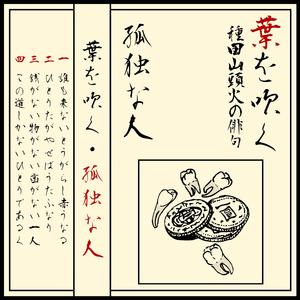 葉を吹く
種田山頭火の俳句
孤独な人
葉を吹く・孤独な人
一 誰も来ないとうがらし赤うなる
二 ひとりたがやせばうたふなり
三 銭がない物がない歯がない一人
四 この道しかないひとりであるく